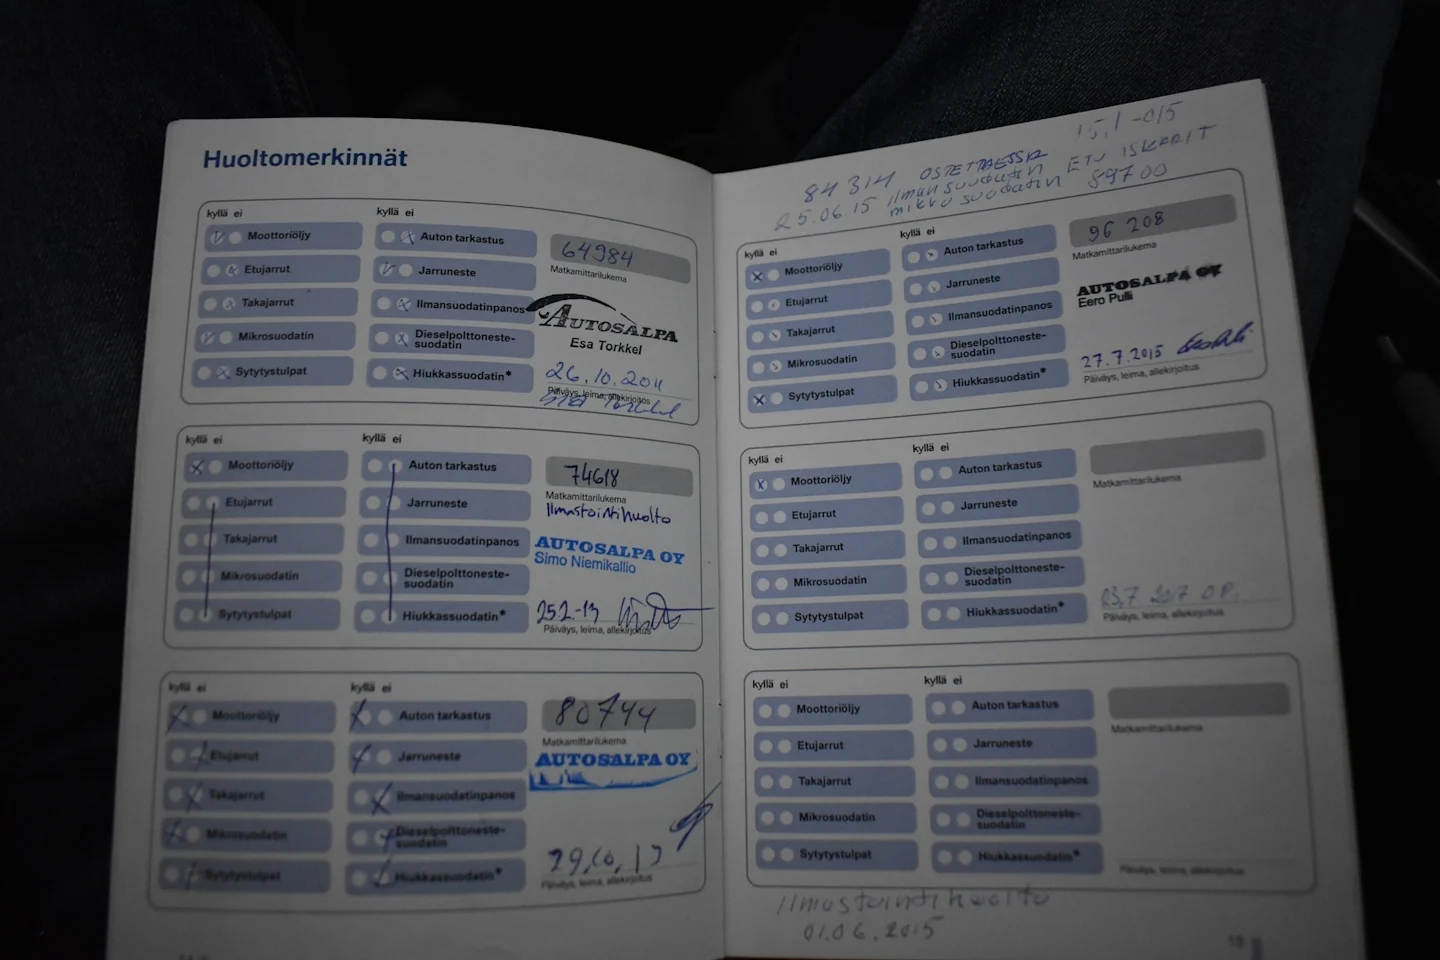 Huoltomerkinnät
kyllä ei
kyllä ei
Moottoriöljy
Etujarrut
Takajarrut
Mikrosuodatin
Sytytystulpat
Auton tarkastus
Jarruneste
Ilmansuodatinpanos
Dieselpolttoneste-
suodatin
Hiukkassuodatin*
64984
Matkamittarilukema
AUTOSALPA
Esa Torkkel
26.10.2011
Päiväys, leima, allekirjoitus
Esa Torkkel
kyllä ei
kyllä ei
Moottoriöljy
Etujarrut
Takajarrut
Mikrosuodatin
Sytytystulpat
Auton tarkastus
Jarruneste
Ilmansuodatinpanos
Dieselpolttoneste-
suodatin
Hiukkassuodatin*
74618
Matkamittarilukema
Ilmastointihuolto
AUTOSALPA OY
Simo Niemikallio
25.2-13
Päiväys, leima, allekirjoitus
kyllä ei
kyllä ei
Moottoriöljy
Etujarrut
Takajarrut
Mikrosuodatin
Sytytystulpat
Auton tarkastus
Jarruneste
Ilmansuodatinpanos
Dieselpolttoneste-
suodatin
Hiukkassuodatin*
80744
Matkamittarilukema
AUTOSALPA OY
29,10,13
Päiväys, leima, allekirjoitus
15.1-015
84314 OSTETTAESSA ETU ISKARIT
25.06.15 Ilmansuodatin 89700
mikrosuodatin
kyllä ei
kyllä ei
Moottoriöljy
Etujarrut
Takajarrut
Mikrosuodatin
Sytytystulpat
Auton tarkastus
Jarruneste
Ilmansuodatinpanos
Dieselpolttoneste-
suodatin
Hiukkassuodatin*
96 208
Matkamittarilukema
AUTOSALPA OY
Eero Pulli
27.7.2015
Päiväys, leima, allekirjoitus
kyllä ei
kyllä ei
Moottoriöljy
Etujarrut
Takajarrut
Mikrosuodatin
Sytytystulpat
Auton tarkastus
Jarruneste
Ilmansuodatinpanos
Dieselpolttoneste-
suodatin
Hiukkassuodatin*
Matkamittarilukema
23.7 2017 O.P.
Päiväys, leima, allekirjoitus
kyllä ei
kyllä ei
Moottoriöljy
Etujarrut
Takajarrut
Mikrosuodatin
Sytytystulpat
Auton tarkastus
Jarruneste
Ilmansuodatinpanos
Dieselpolttoneste-
suodatin
Hiukkassuodatin*
Matkamittarilukema
Päiväys, leima, allekirjoitus
Ilmastointihuolto
01.06.2015